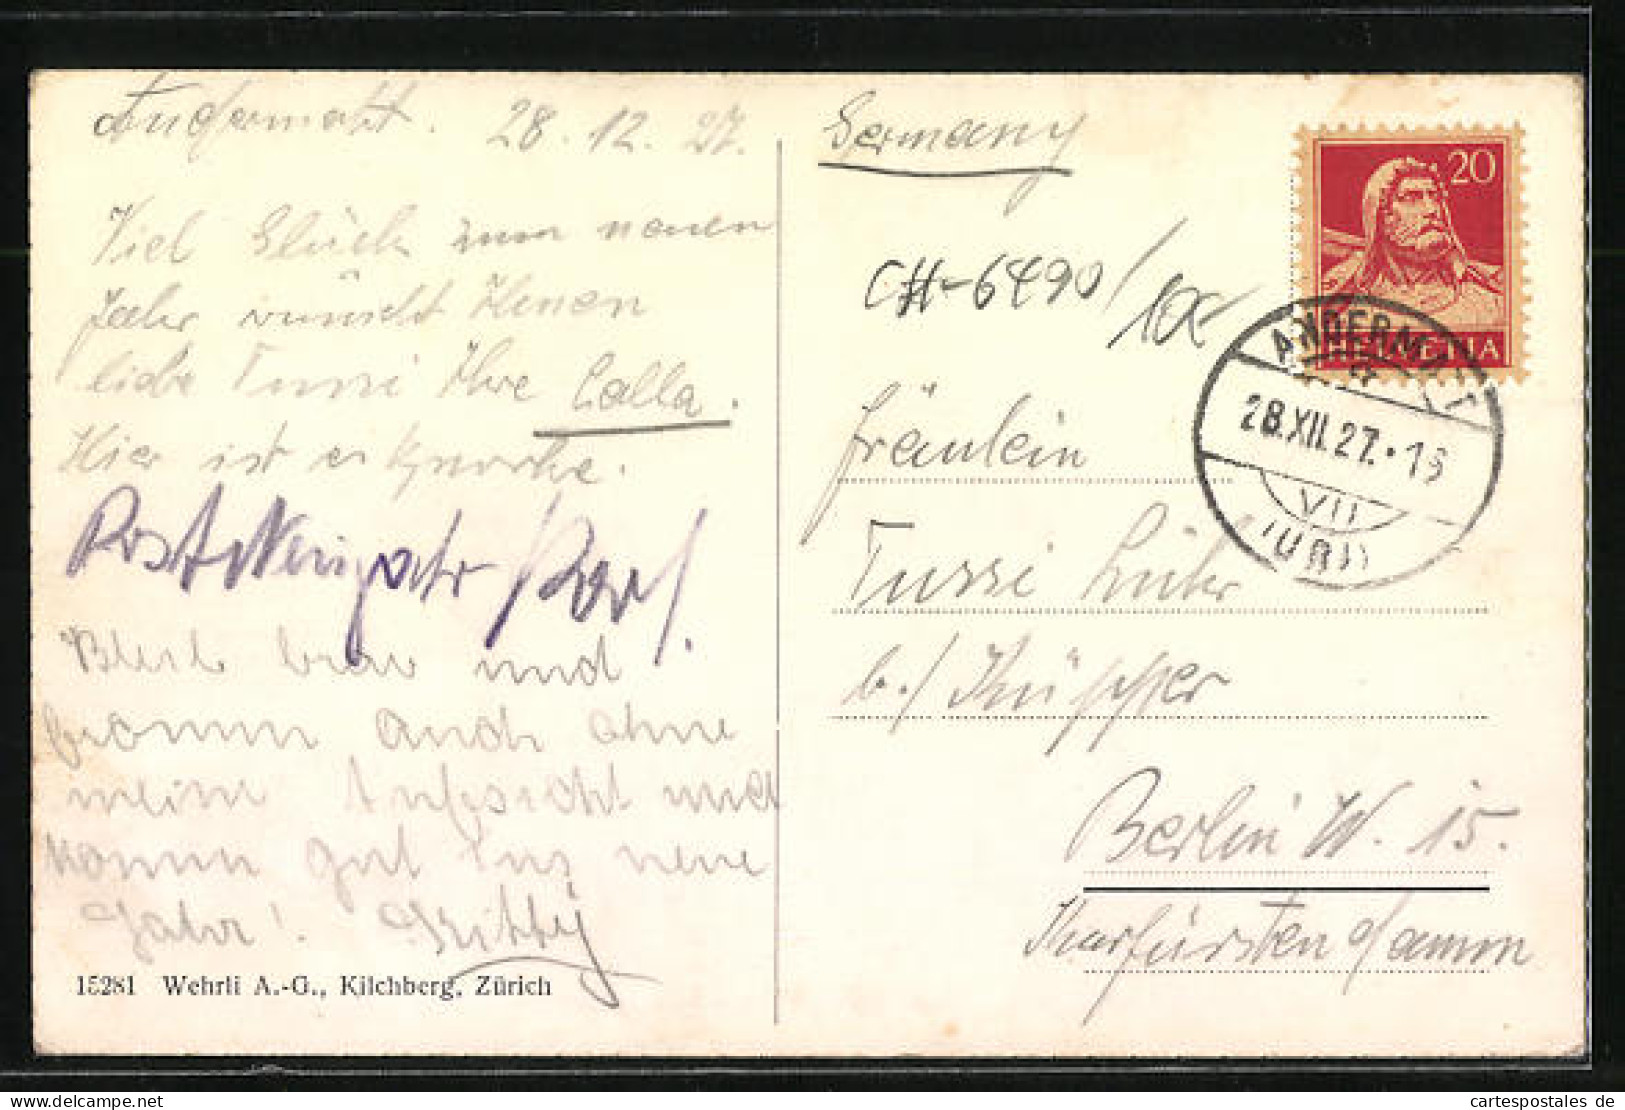 Andermatt. 28.12.27.
Viel Glück zum neuen
Jahr wünscht Ihnen
liebe Tussi Ihre Calla.
Hier ist es
Prost Neujahr
Bleib brav und
fromm auch ohne
meine Aufsicht und
komm gut ins neue
Jahr! Kitty
15281 Wehrli A.-G., Kilchberg, Zürich
Germany
20
HELVETIA
CH-6490/
ANDERMATT
28.XII.27.
VII
(URI)
Fräulein
Tussi Lühr
b./ Küpper
Berlin W. 15.
Kurfürstendamm
cartespostales de